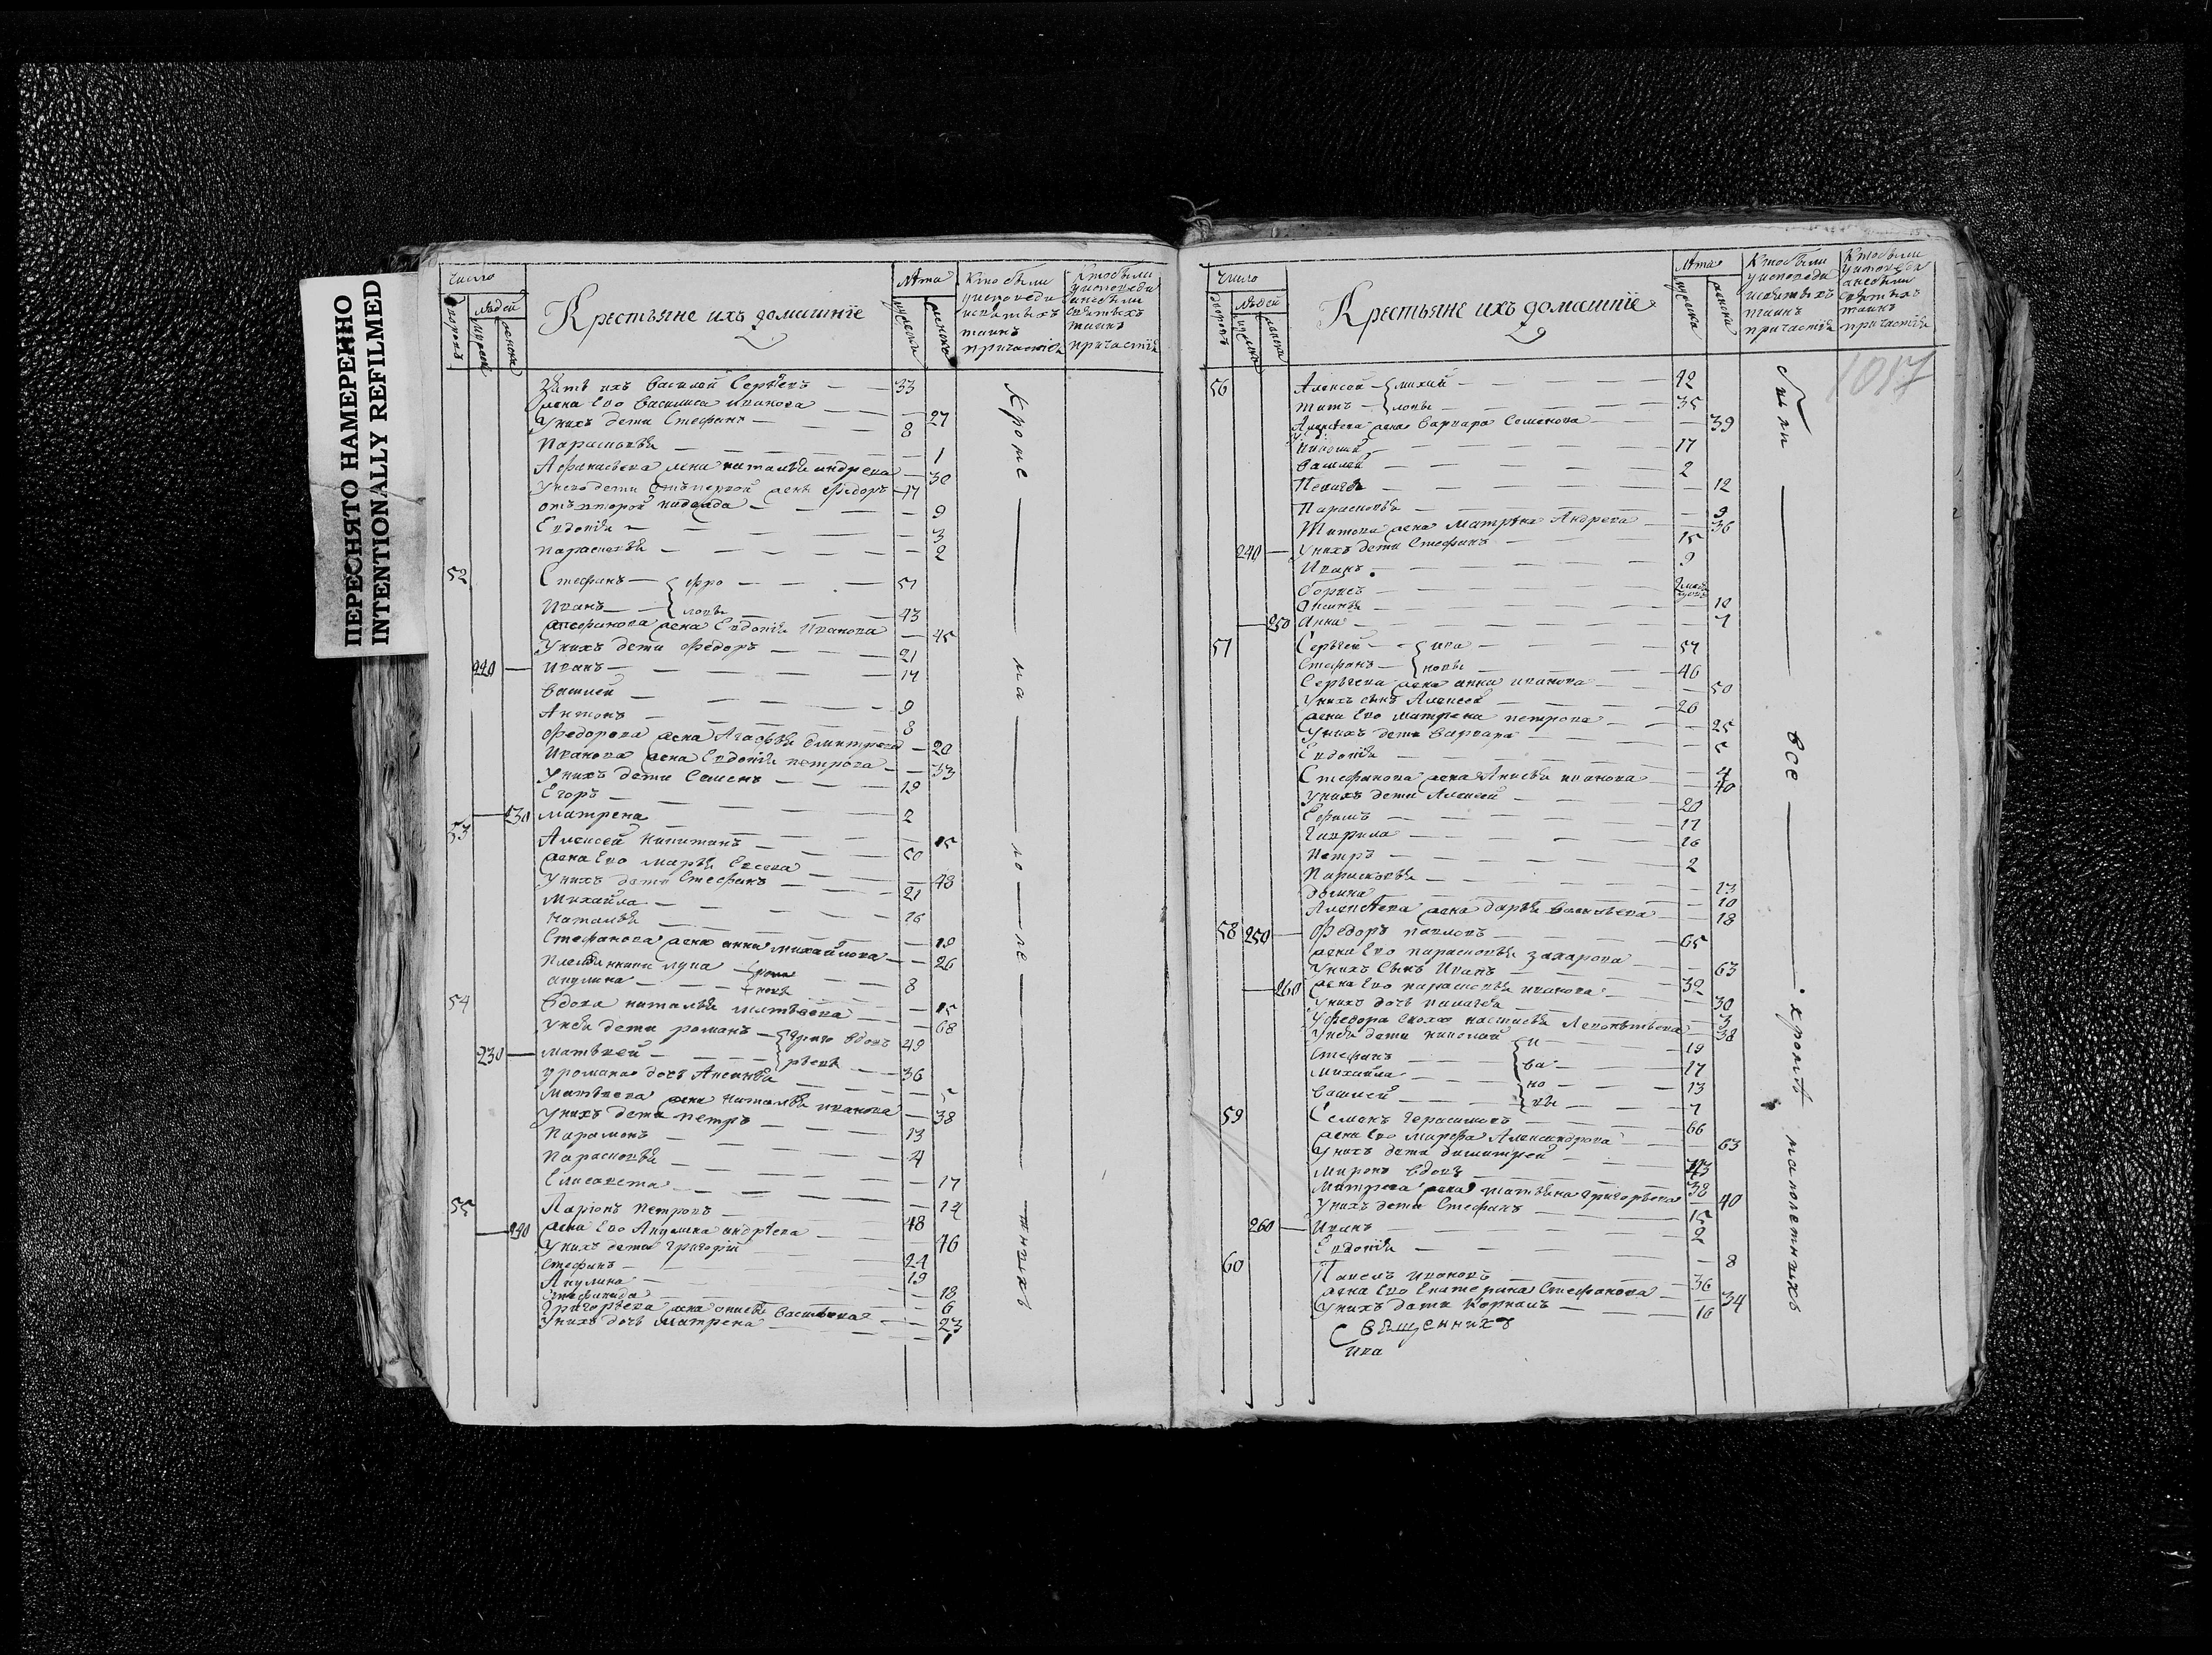 ПЕРЕСНЯТО НАМЕРЕННО
INTENTIONALLY REFILMED
Число
дворовъ
людей
Крестьяне ихъ домашнiе
Лѣта
Кто были
у исповеди
и святыхъ
таинъ
причастiя
Кто были
у исповеди
а не были
святыхъ
таинъ
причастiя
Зять ихъ Василей Сергѣевъ 33
жена Ево Василиса иванова 27
У нихъ дети Стефанъ 8
Парасковья 1
Афанасьева жена наталья андрева 30
У нево дети отъ первой жены Федоръ 17
отъ второй надежда 9
Евдокiя 3
Парасковья 2
52 Стефанъ фро 51
Иванъ ловы 43
Стефанова жена Евдокiя Иванова 45
У нихъ дети Федоръ 21
220 Иванъ 17
Василей 9
Антонъ 8
Федорова жена Агафья дмитрева 20
Иванова жена Евдокiя петрова 33
У нихъ дети Семенъ 12
Егоръ 2
230 матрена 15
53 Алексей Никитинъ 50
жена Ево Марья Евсева 48
У нихъ дети Стефанъ 21
Михайла 16
Наталья 10
Стефанова жена анна михайлова 26
лука 8
акулина 15
54 Вдова наталья матвѣева 68
У нея дети романъ вдовъ 49
230 Матвей 36
у романа дочь Аксинья 5
Матвѣева жена Наталья иванова 38
У нихъ дети петръ 13
Парамонъ 4
Парасковья 17
Елисавета 14
55 Ларiонъ Петровъ 48
240 жена Ево Акулина андрѣева 46
У нихъ дети григорiй 24
Стефанъ 19
Акулина 18
Степанида 6
Григорьева жена анисья Васильева 23
У нихъ дочь Матрена 1
Кроме малолетныхъ
1017
Число
дворовъ
людей
Крестьяне ихъ домашнiе
Лѣта
Кто были
у исповеди
и святыхъ
таинъ
причастiя
Кто были
у исповеди
а не были
святыхъ
таинъ
причастiя
56 Алексей михай 42
титъ ловы 35
Алексѣева жена Варвара Семенова 39
Николай 17
Василей 2
Пелагея 12
Парасковья 9
Титова жена Матрѣна Андрева 36
240 У нихъ дети Стефанъ 15
Иванъ 9
Борисъ
Аксинья 10
250 Анна 7
57 Сергей ива 57
Стефанъ новы 46
Сергѣева жена анна иванова 50
У нихъ сынъ Алексей 26
жена Ево матрена петрова 25
У нихъ дети Варвара 5
Евдокiя 4
Стефанова жена Анисья иванова 40
У нихъ дети Алексей 20
Ефимъ 17
Гаврила 16
Петръ 2
Парасковья 13
домна 10
Алексѣева жена дарья Васильева 18
58 250 Федоръ павловъ 65
жена Ево парасковья захарова 63
У нихъ Сынъ Иванъ 32
260 жена Ево парасковья иванова 30
У нихъ дочь пелагея 3
У федора сноха настасья Леонтьева 38
У нея дети николай 19
Стефанъ 17
Михайла 13
Василей 7
59 Семенъ Герасимовъ 66
жена Ево Марфа Александрова 63
У нихъ дети димитрей 43
Миронъ вдовъ 38
Митрева жена матрена григорьева 40
У нихъ дети Стефанъ 15
260 Иванъ 2
Евдокiя 8
60 Павелъ ивановъ 36
жена Ево Екатерина Стефанова 34
У нихъ дети Корнилъ 16
Священникъ
ива
были все кромѣ малолетныхъ